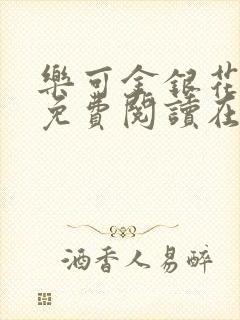 樂可金銀花
免費閱讀在
酒香人易醉